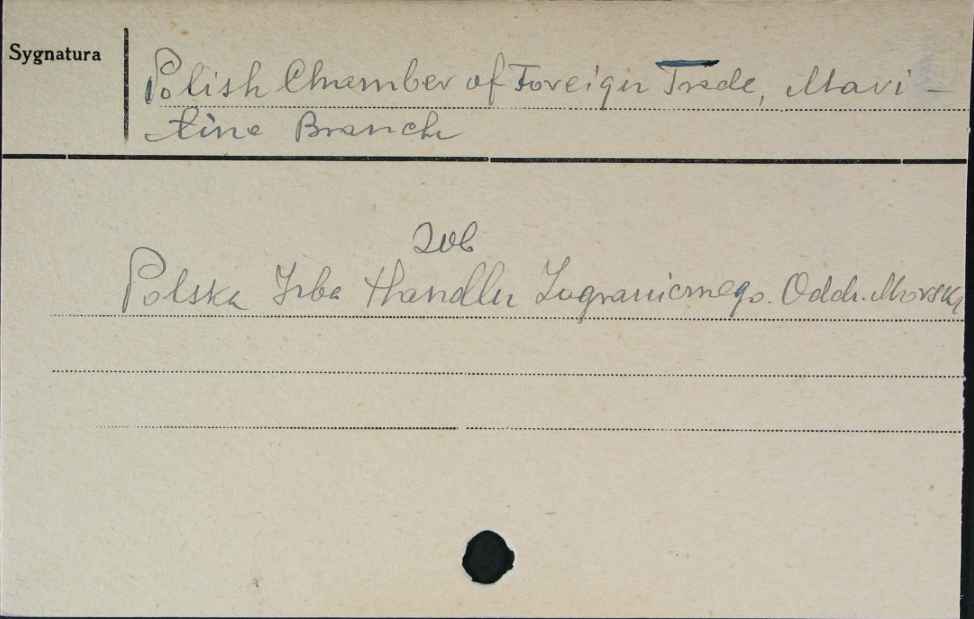 Sygnatura
Polish Chamber of Foreign Trade, Mari-
time Branch
zob
Polska Izba Handlu Zagranicznego. Oddz. Morski